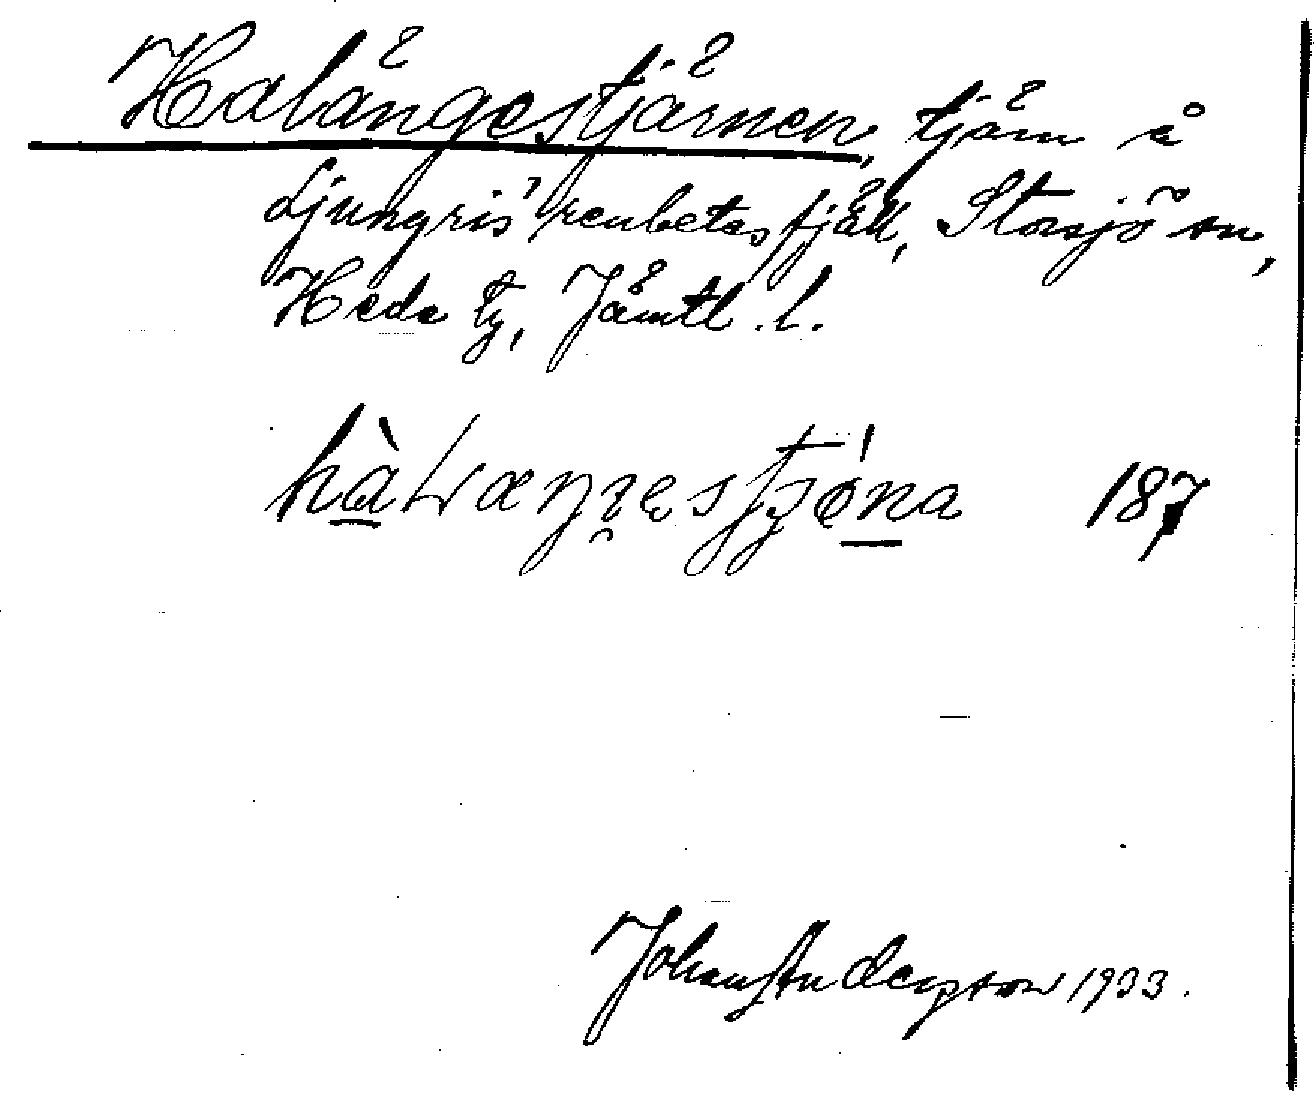 Halångestjärnen, tjärn å
Ljungris' renbetesfjäll, Storsjö sn,
Hede tg, Jämtl. l.
187
Johan Anderzson 1933.